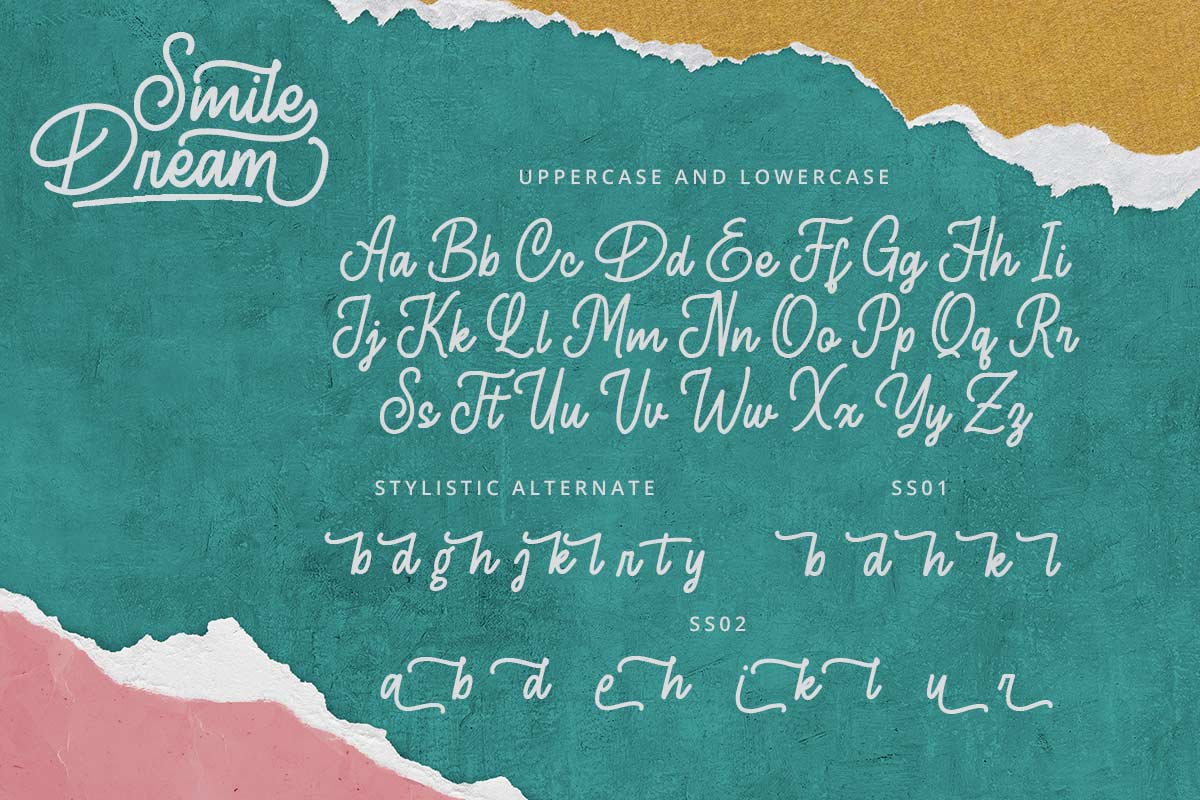 Smile
Dream
UPPERCASE AND LOWERCASE
Aa Bb Cc Dd Ee Ff Gg Hh Ii
Jj Kk Ll Mm Nn Oo Pp Qq Rr
Ss Tt Uu Vv Ww Xx Yy Zz
STYLISTIC ALTERNATE
b d g h j k l r t y
SS01
b d h k l
SS02
a b d e h i k l u r